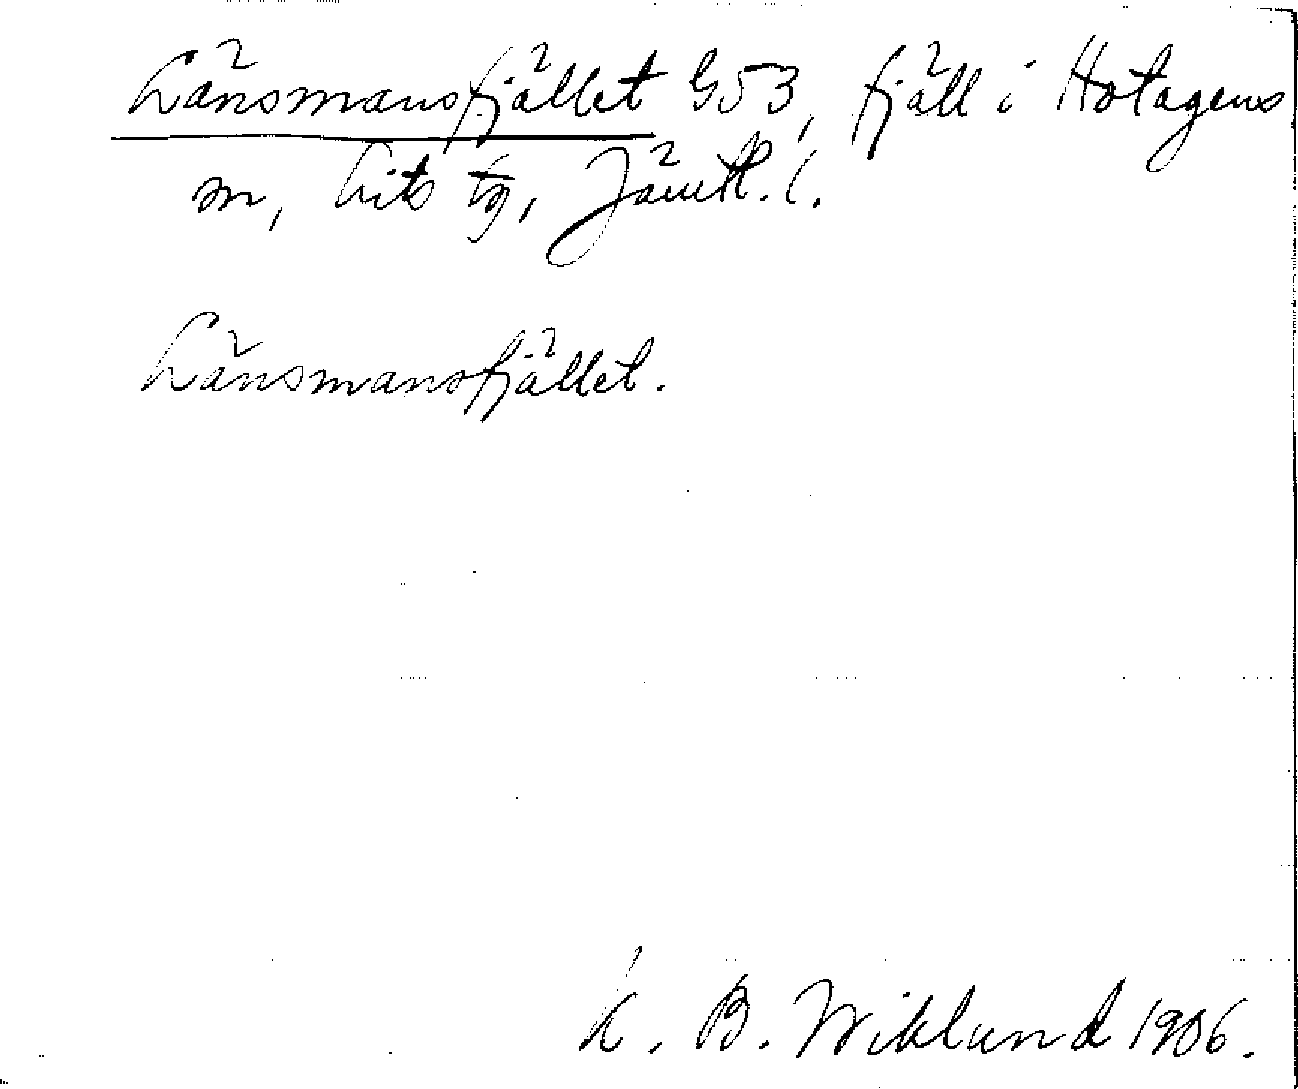 Länsmansfjället G53, fjäll i Hotagens
sn, Lits tg, Jämtl. l.
Länsmansfjället.
K. B. Wiklund 1906.